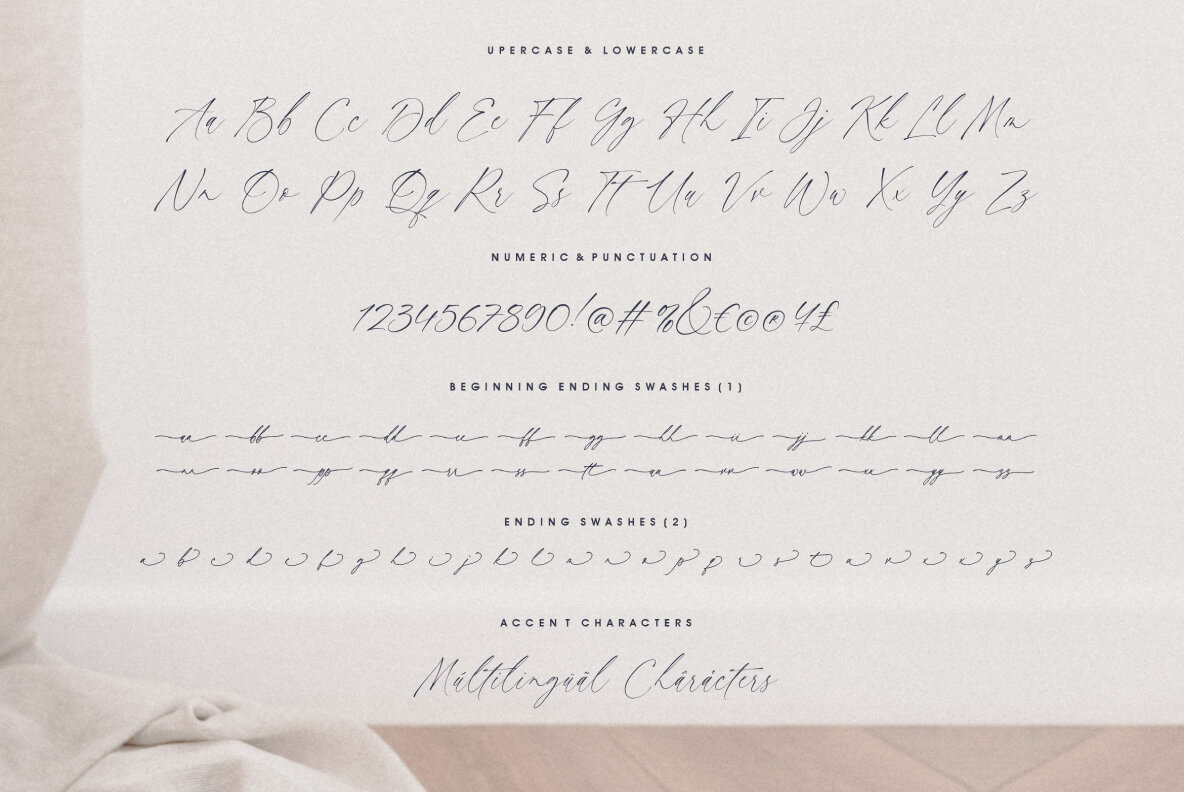 UPERCASE & LOWERCASE
Aa Bb Cc Dd Ee Ff Gg Hh Ii Jj Kk Ll Mm
Nn Oo Pp Qq Rr Ss Tt Uu Vv Ww Xx Yy Zz
NUMERIC & PUNCTUATION
1234567890!@#%&€©®¥£
BEGINNING ENDING SWASHES (1)
aa bb cc dd ee ff gg hh ii jj kk ll mm
nn oo pp qq rr ss tt uu vv ww xx yy zz
ENDING SWASHES (2)
a b c d e f g h i j k l m n o p q r s t u v w x y z
ACCENT CHARACTERS
Múltilingüäl Chäráctërs